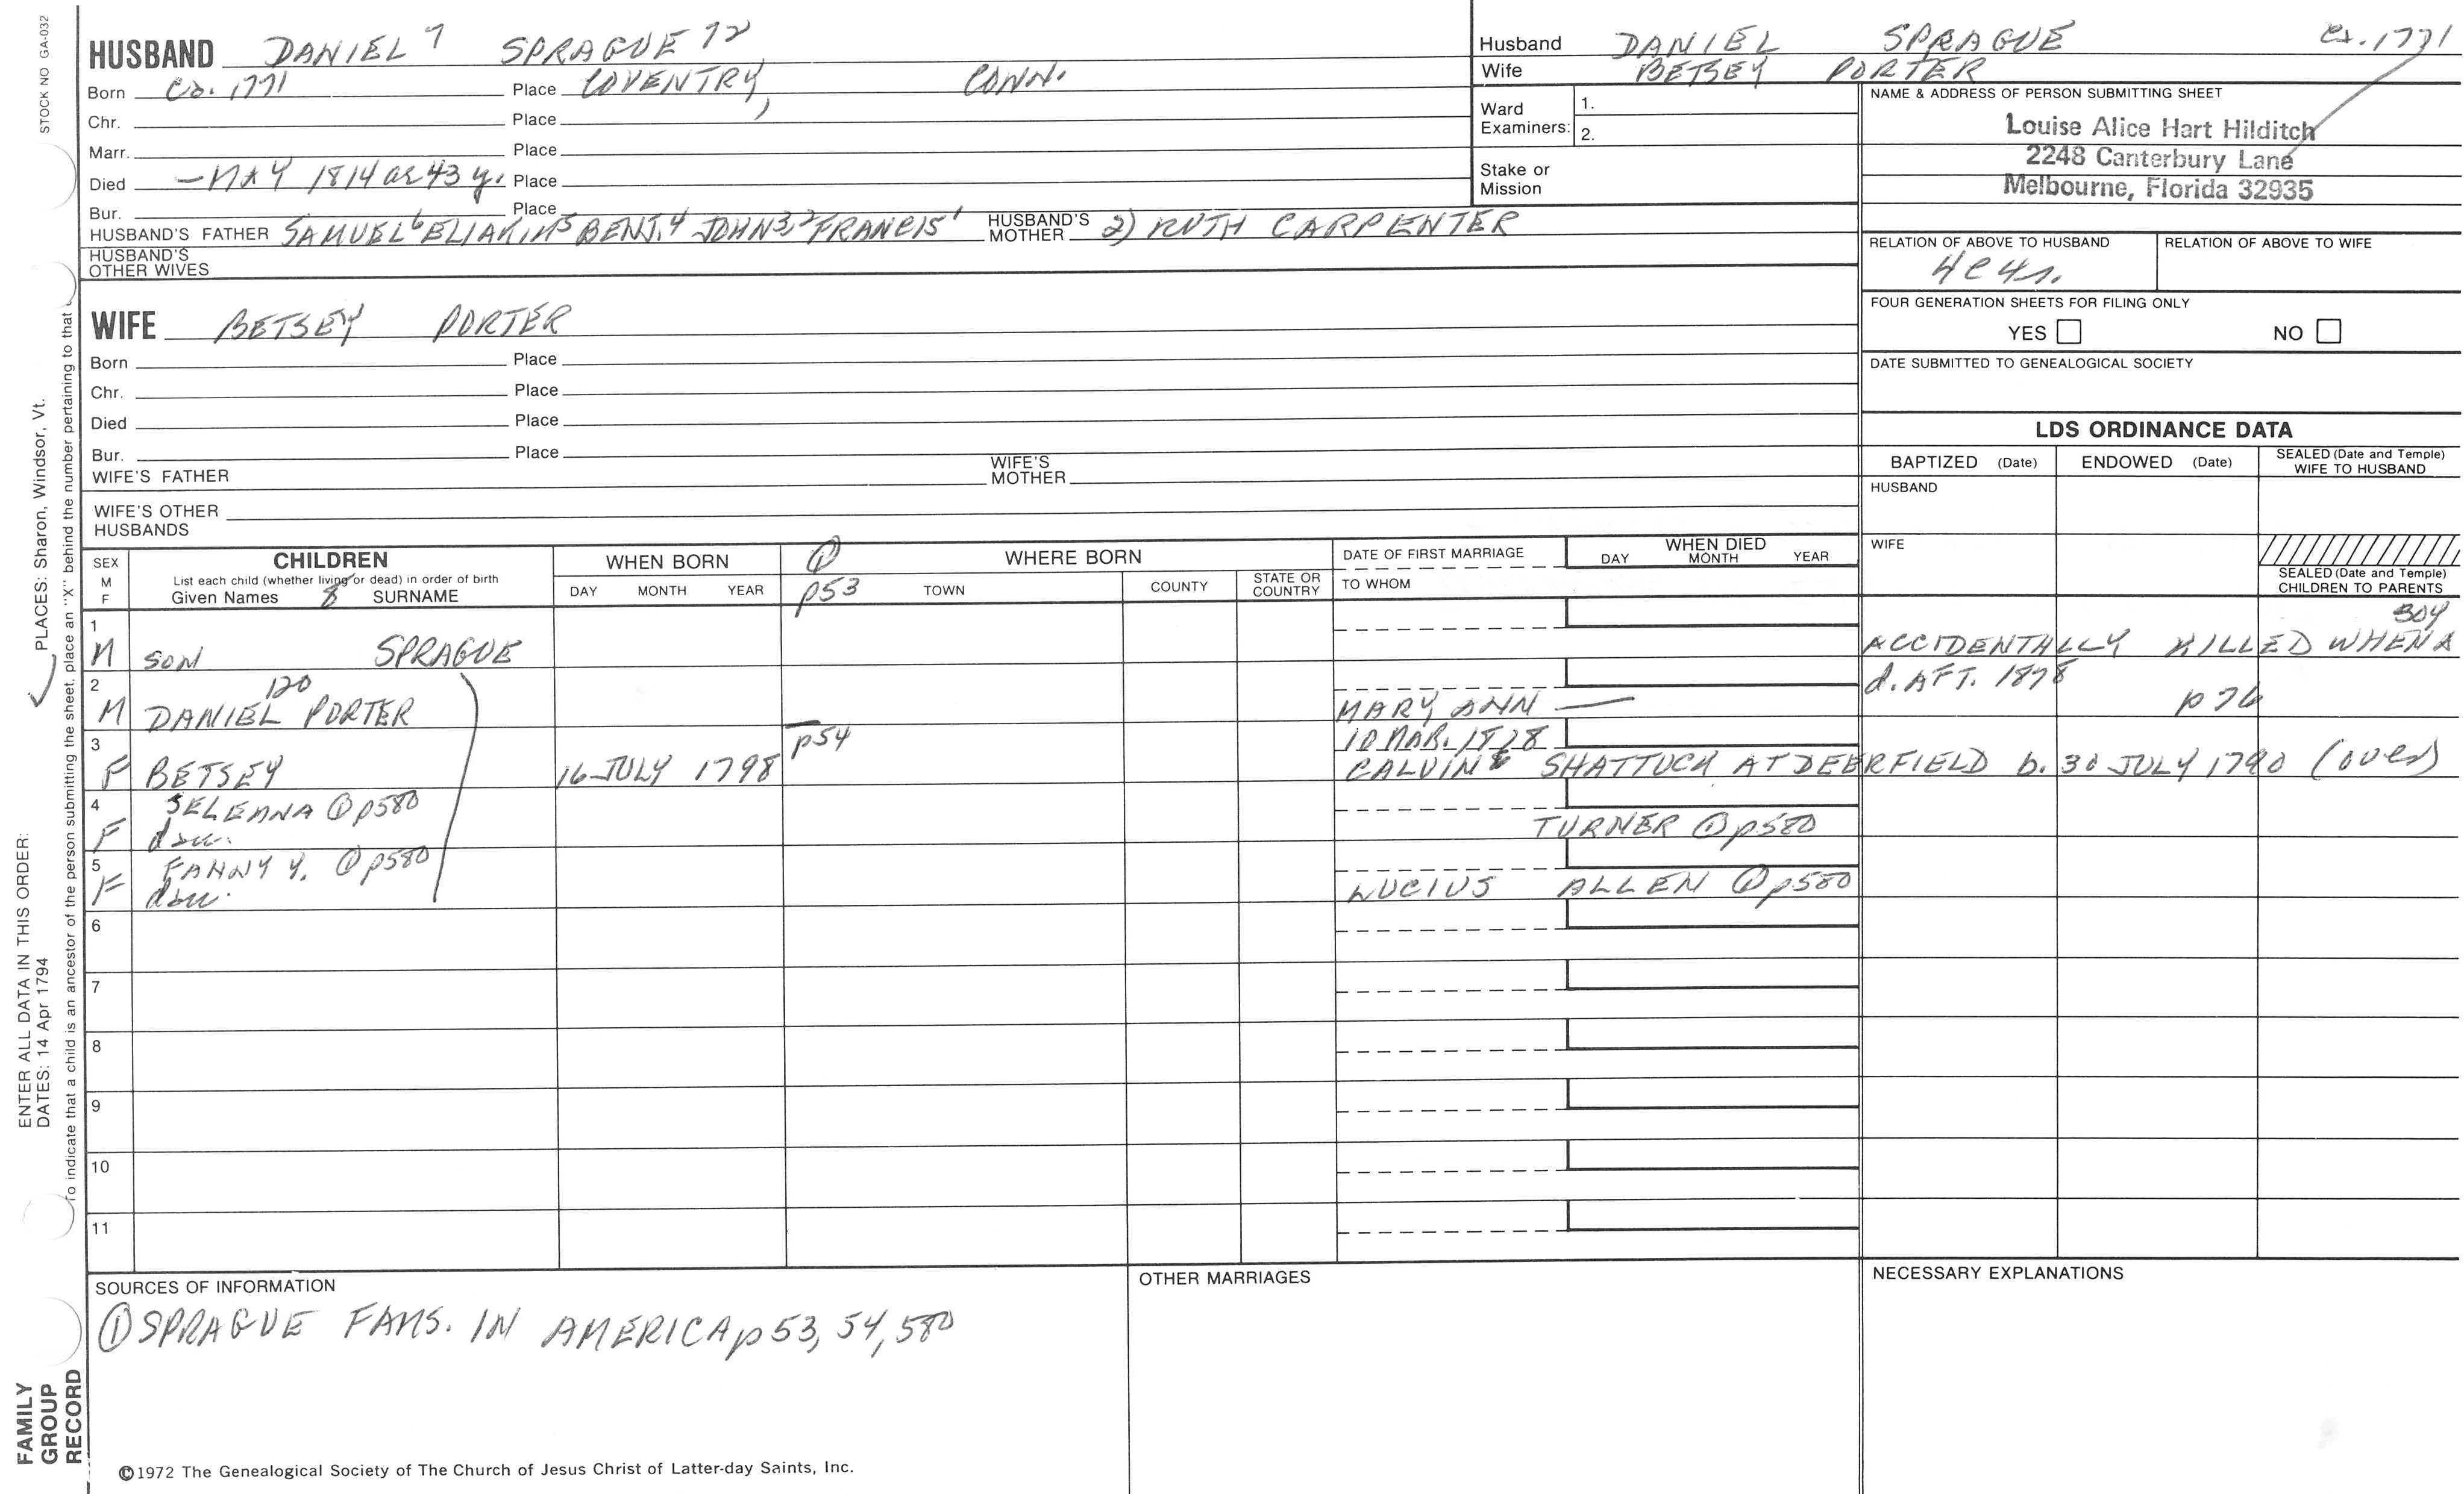 STOCK NO GA-032
HUSBAND DANIEL 7 SPRAGUE 72
Born Ca. 1771 Place COVENTRY, CONN.
Chr. Place
Marr. Place
Died — MAY 1814 ae 43 y. Place
Bur. Place
HUSBAND'S FATHER SAMUEL6 ELIAKIM5 BENJ.4 JOHN3,2 FRANCIS1 HUSBAND'S MOTHER 2) RUTH CARPENTER
HUSBAND'S OTHER WIVES
WIFE BETSEY PORTER
Born Place
Chr. Place
Died Place
Bur. Place
WIFE'S FATHER WIFE'S MOTHER
WIFE'S OTHER HUSBANDS
Husband DANIEL SPRAGUE Ca. 1771
Wife BETSEY PORTER
Ward Examiners: 1.
2.
Stake or Mission
NAME & ADDRESS OF PERSON SUBMITTING SHEET
Louise Alice Hart Hilditch
2248 Canterbury Lane
Melbourne, Florida 32935
RELATION OF ABOVE TO HUSBAND RELATION OF ABOVE TO WIFE
4C4r.
FOUR GENERATION SHEETS FOR FILING ONLY
YES NO
DATE SUBMITTED TO GENEALOGICAL SOCIETY
LDS ORDINANCE DATA
BAPTIZED (Date) ENDOWED (Date) SEALED (Date and Temple) WIFE TO HUSBAND
HUSBAND
WIFE
SEALED (Date and Temple) CHILDREN TO PARENTS
SEX M F
CHILDREN
List each child (whether living or dead) in order of birth
Given Names 8 SURNAME
WHEN BORN
DAY MONTH YEAR
① p53
WHERE BORN
TOWN COUNTY STATE OR COUNTRY
DATE OF FIRST MARRIAGE
TO WHOM
WHEN DIED
DAY MONTH YEAR
1 M SON SPRAGUE ACCIDENTALLY KILLED WHEN A BOY
2 M DANIEL PORTER 120 MARY ANN — d. AFT. 1878 p76
3 F BETSEY 16 JULY 1798 p54 10 MAR. 1828
CALVIN SHATTUCK AT DEERFIELD b. 30 JULY 1790 (over)
4 F SELEANA ① p580
dau. TURNER ① p580
5 F FANNY Y. ① p580
dau. LUCIUS ALLEN ① p580
6
7
8
9
10
11
SOURCES OF INFORMATION
① SPRAGUE FAMS. IN AMERICA p 53, 54, 580
OTHER MARRIAGES
NECESSARY EXPLANATIONS
©1972 The Genealogical Society of The Church of Jesus Christ of Latter-day Saints, Inc.
FAMILY GROUP RECORD
ENTER ALL DATA IN THIS ORDER:
DATES: 14 Apr 1794
PLACES: Sharon, Windsor, Vt.
To indicate that a child is an ancestor of the person submitting the sheet, place an "X" behind the number pertaining to that